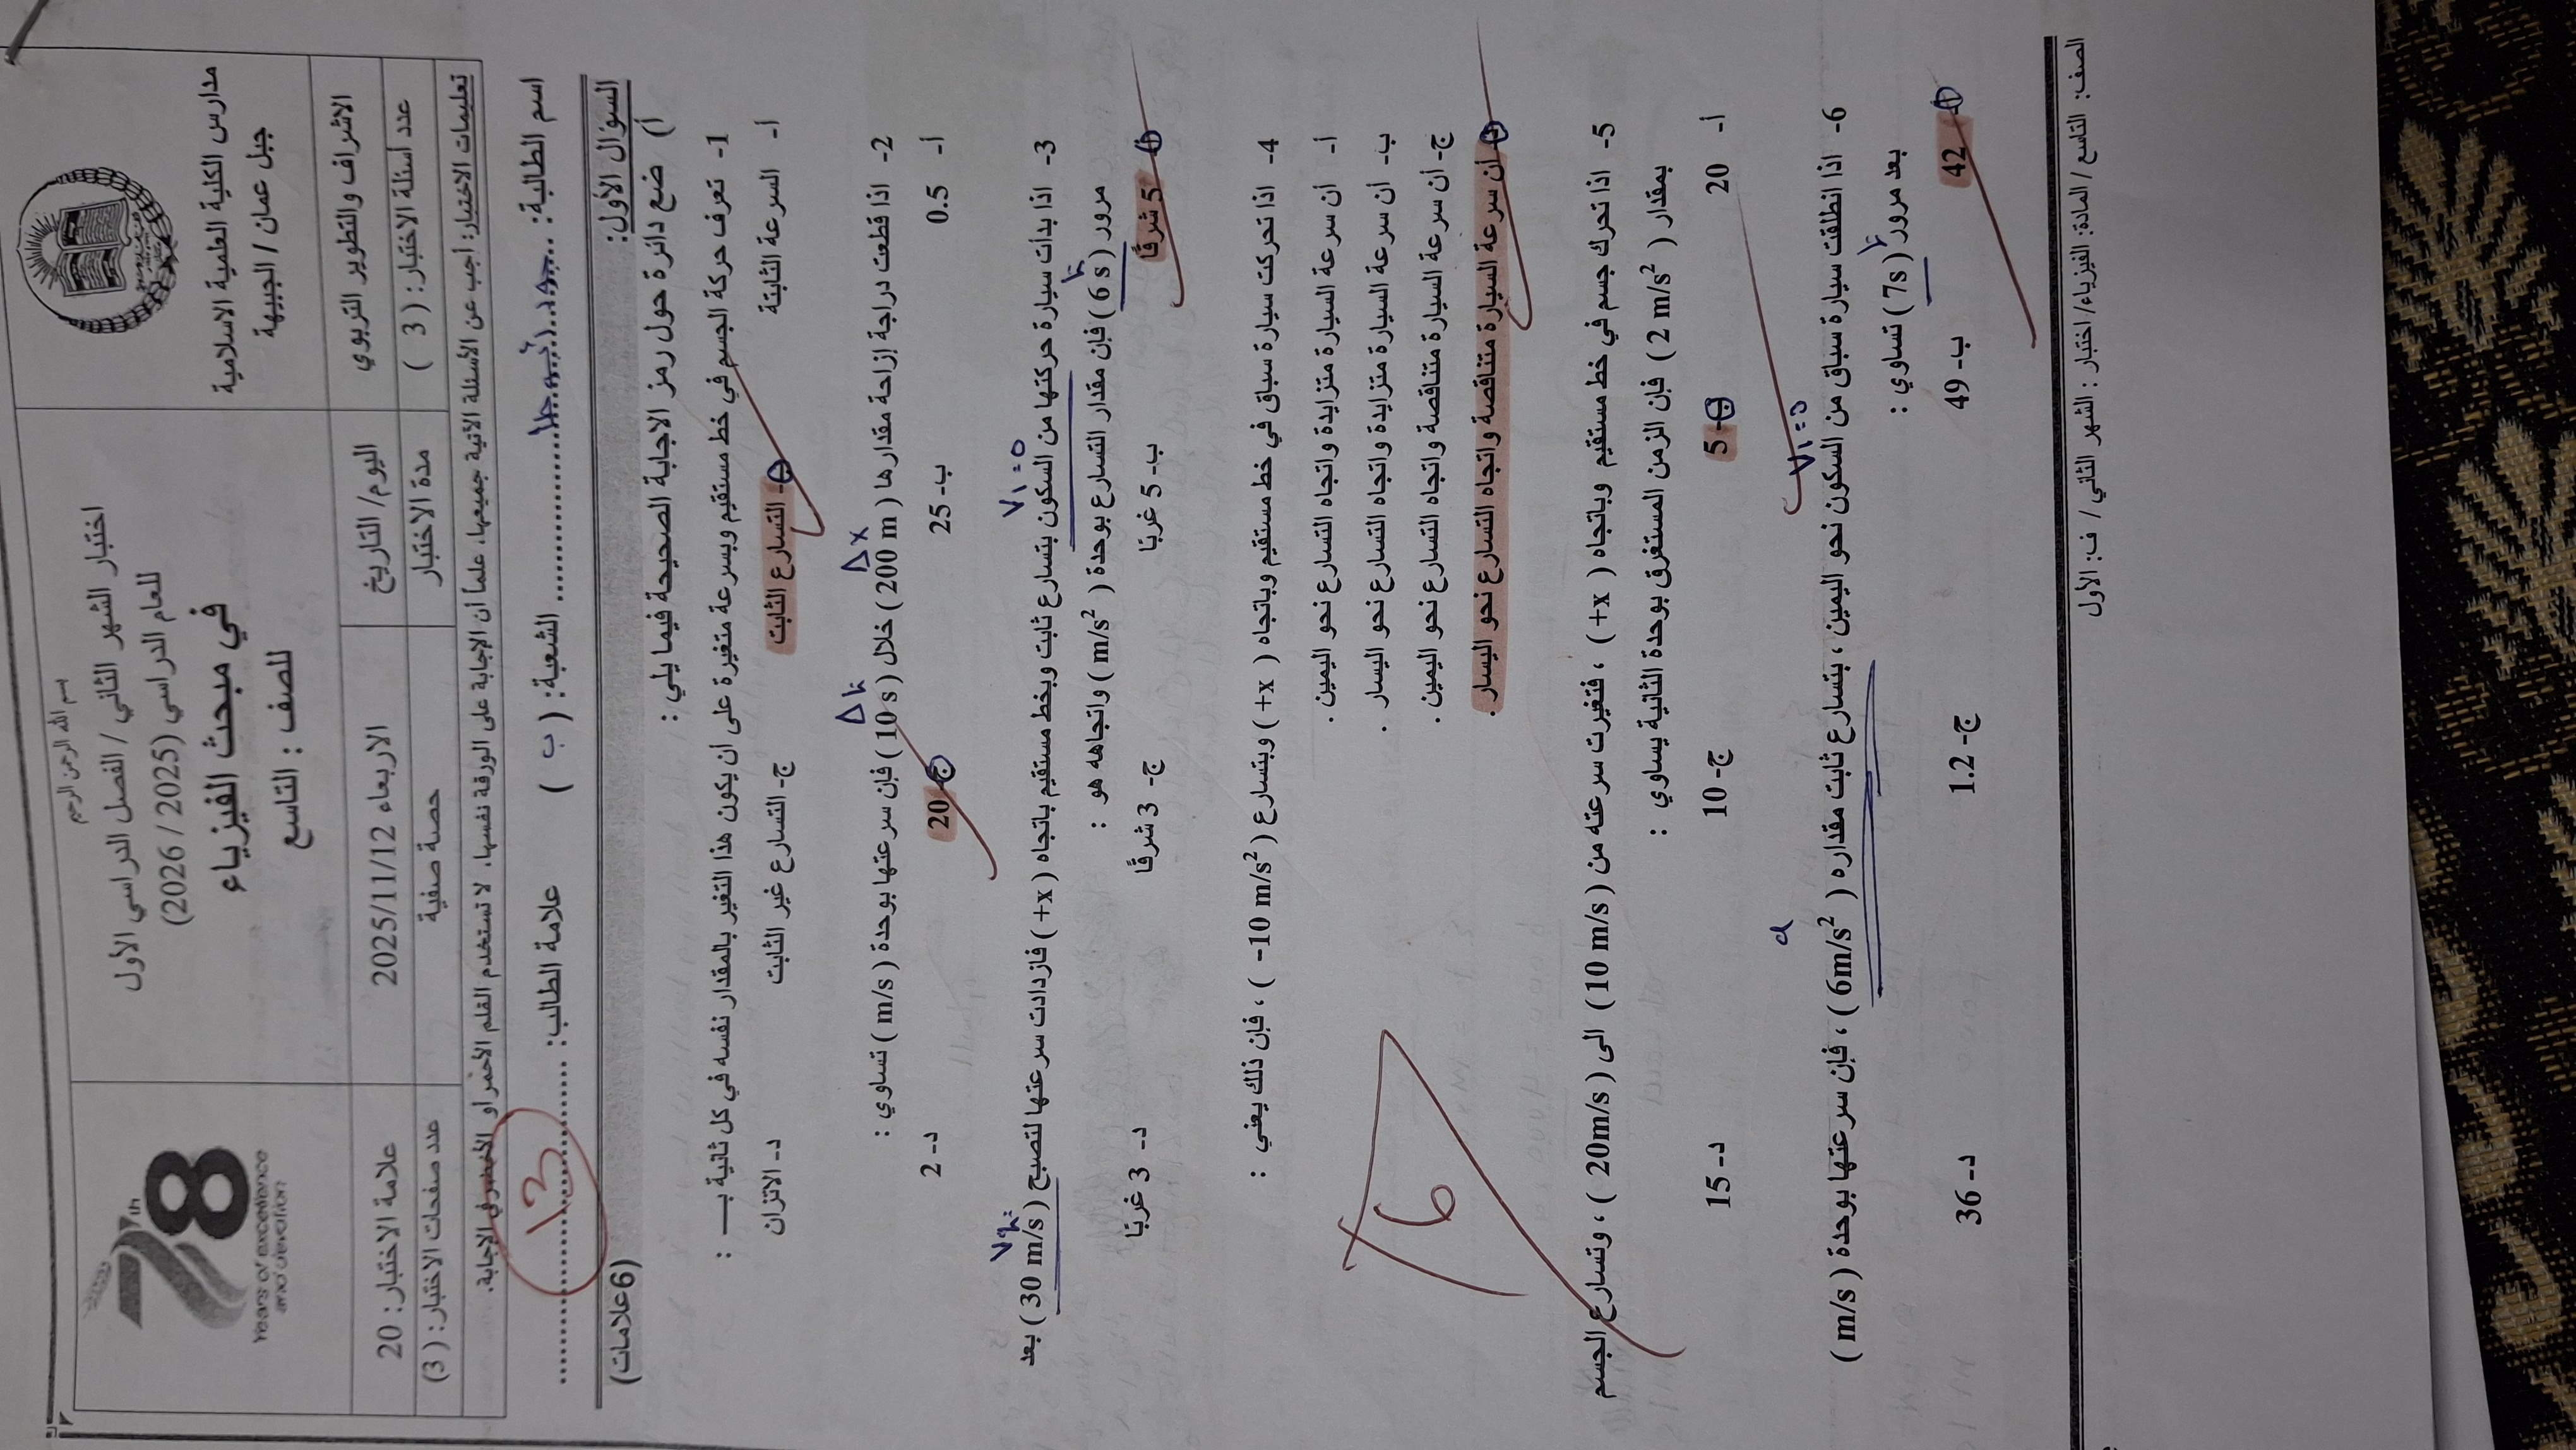 بسم الله الرحمن الرحيم
مدارس الكلية العلمية الاسلامية
جبل عمان / الجبيهة
اختبار الشهر الثاني / الفصل الدراسي الأول
للعام الدراسي (2025 / 2026)
في مبحث الفيزياء
للصف : التاسع
78th
Years of excellence
and devotion
الاشراف والتطوير التربوي
اليوم/ التاريخ
الاربعاء 2025/11/12
علامة الاختبار: 20
عدد أسئلة الاختبار: ( 3 )
مدة الاختبار
حصة صفية
عدد صفحات الاختبار: (3)
تعليمات الاختبار: أجب عن الأسئلة الآتية جميعها، علماً أن الإجابة على الورقة نفسها. لا تستخدم القلم الأحمر او الأخضر في الإجابة.
اسم الطالبة: الشعبة: ( ب ) علامة الطالب:
13
السؤال الأول: (6علامات)
أ) ضع دائرة حول رمز الاجابة الصحيحة فيما يلي :
1- تعرف حركة الجسم في خط مستقيم وبسرعة متغيرة على ان يكون هذا التغير بالمقدار نفسه في كل ثانية بـ :
أ- السرعة الثابتة ب- التسارع الثابت ج- التسارع غير الثابت د- الاتزان
Δx Δt
2- اذا قطعت دراجة إزاحة مقدارها ( 200 m ) خلال ( 10 s ) فإن سرعتها بوحدة ( m/s ) تساوي :
أ- 0.5 ب- 25 ج- 20 د- 2
V1=0 V2=
3- اذا بدأت سيارة حركتها من السكون بتسارع ثابت وبخط مستقيم باتجاه ( +x ) فازدادت سرعتها لتصبح ( 30 m/s ) بعد
مرور ( 6 s ) فإن مقدار التسارع بوحدة ( m/s² ) واتجاهه هو :
t
أ- 5 شرقًا ب- 5 غربًا ج- 3 شرقًا د- 3 غربًا
4- اذا تحركت سيارة سباق في خط مستقيم وباتجاه ( +x ) وبتسارع ( -10 m/s² ) ، فإن ذلك يعني :
أ- أن سرعة السيارة متزايدة واتجاه التسارع نحو اليمين .
ب- أن سرعة السيارة متزايدة واتجاه التسارع نحو اليسار .
ج- أن سرعة السيارة متناقصة واتجاه التسارع نحو اليمين .
د- أن سرعة السيارة متناقصة واتجاه التسارع نحو اليسار .
6
5- اذا تحرك جسم في خط مستقيم وباتجاه ( +x ) ، فتغيرت سرعته من ( 10 m/s ) الى ( 20m/s ) ، وتسارع الجسم
بمقدار ( 2 m/s² ) فإن الزمن المستغرق بوحدة الثانية يساوي :
أ- 20 ب- 5 ج- 10 د- 15
V1=0 a
6- اذا انطلقت سيارة سباق من السكون نحو اليمين ، بتسارع ثابت مقداره ( 6m/s² ) ، فإن سرعتها بوحدة ( m/s )
بعد مرور ( 7s ) تساوي :
t
أ- 42 ب- 49 ج- 1.2 د- 36
الصف: التاسع / المادة: الفيزياء/ اختبار : الشهر الثاني / ف: الأول